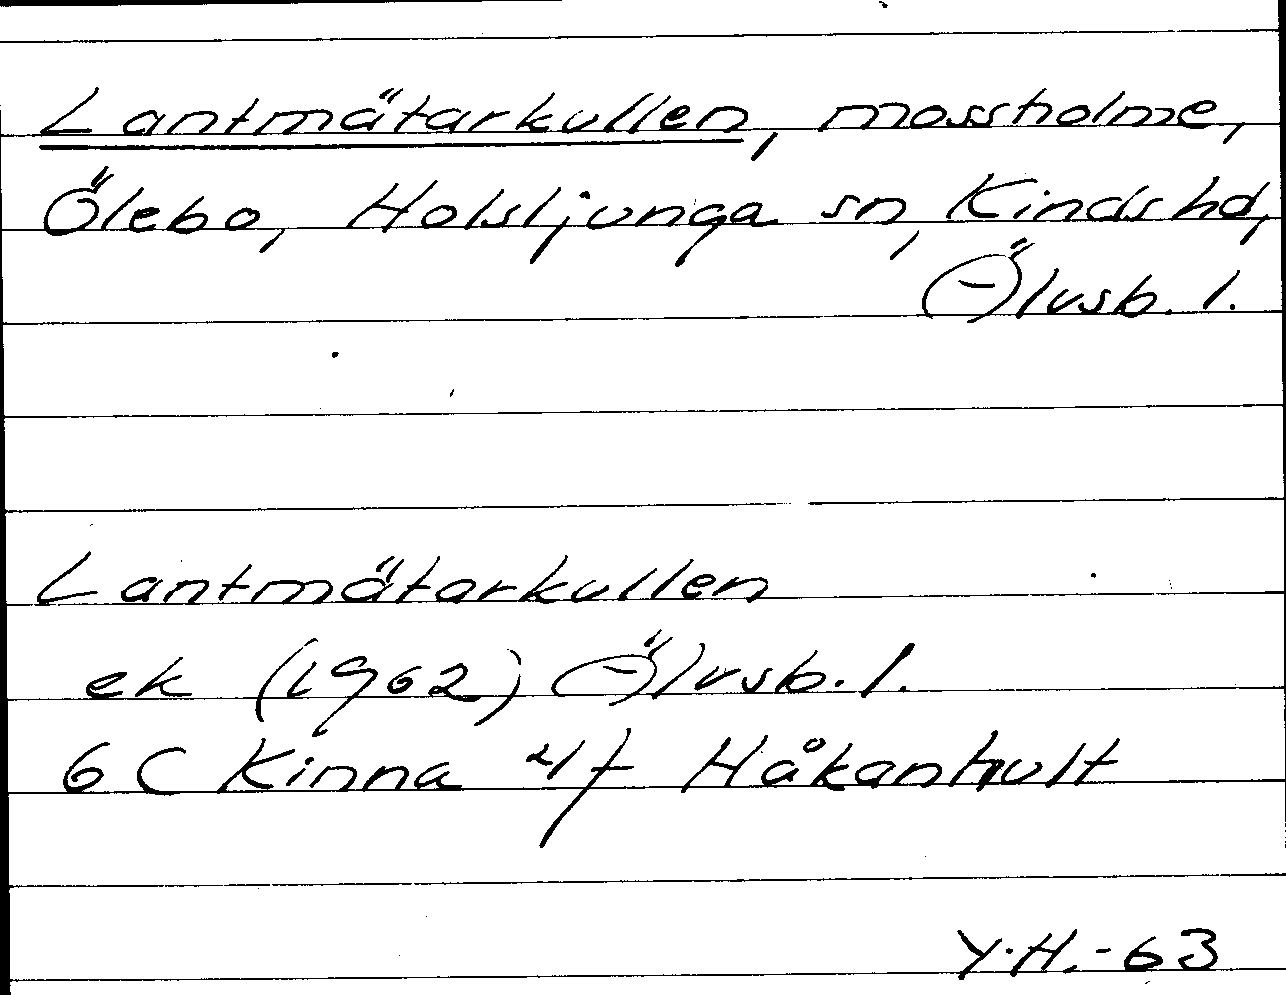 Lantmätarkullen, mossholme,
Ölebo, Holsljunga sn, Kinds hd,
Älvsb. l.
Lantmätarkullen
ek (1962) Älvsb. l.
6 C Kinna 4 f Håkanhult
Y.H.-63